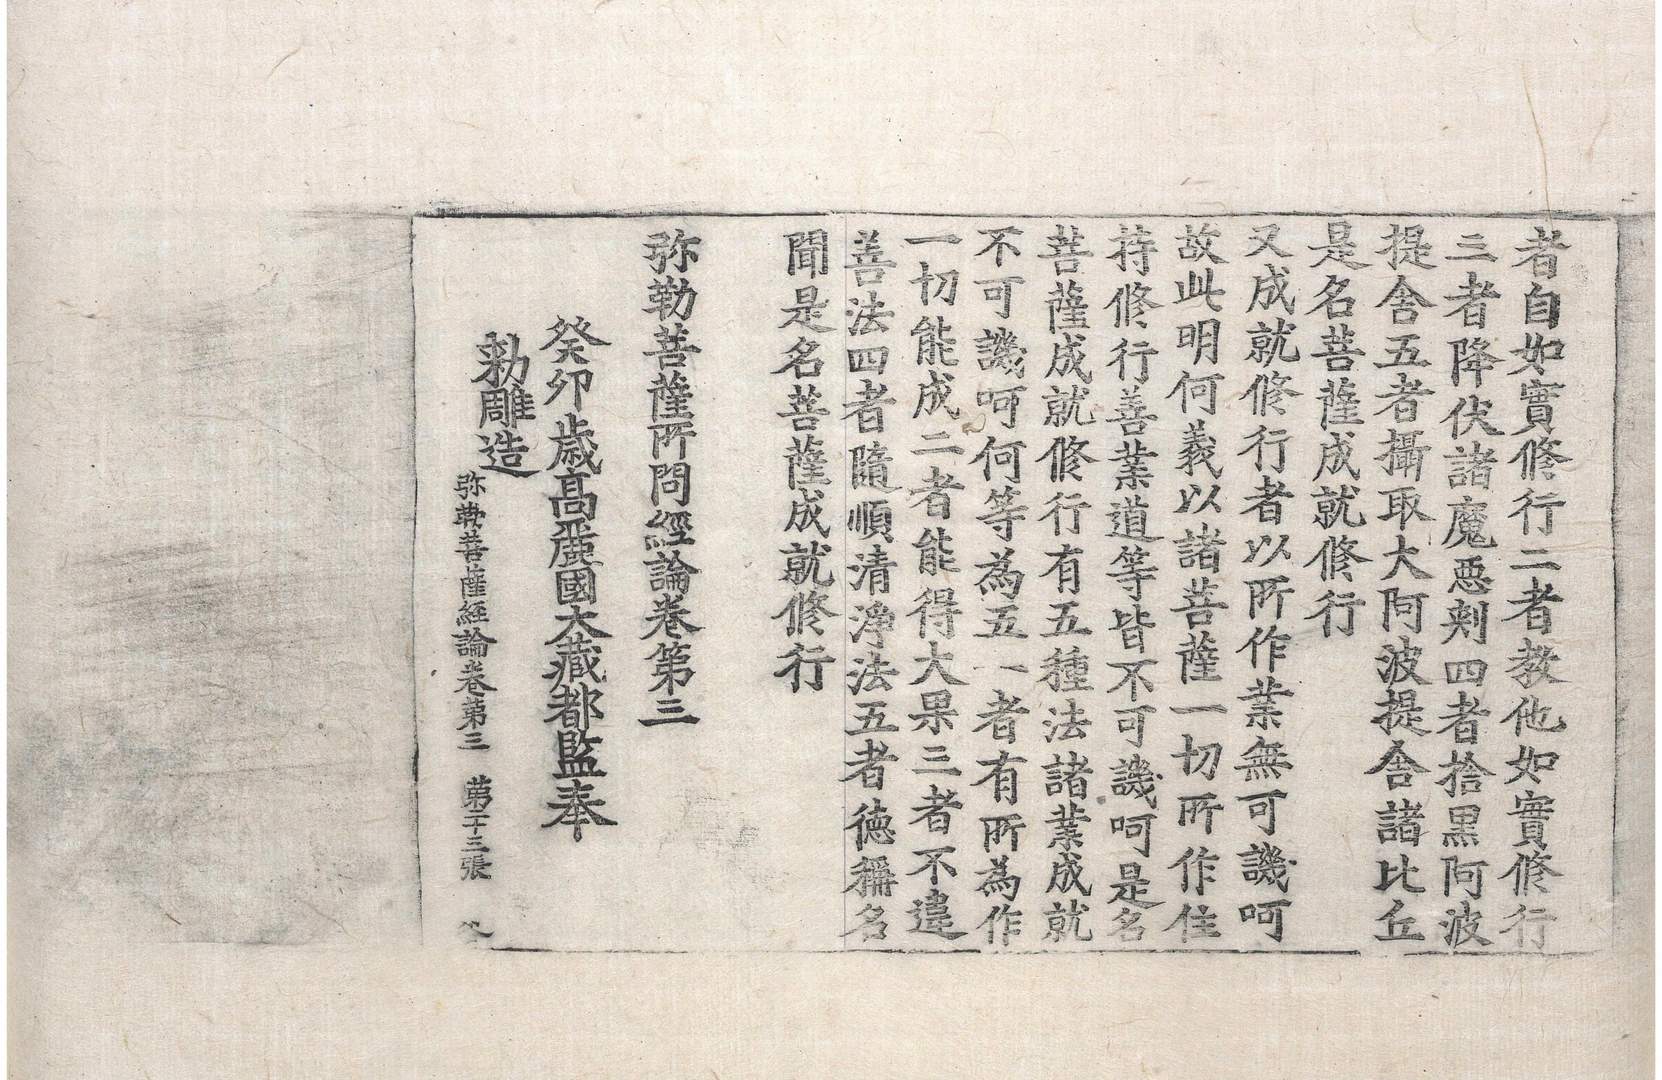 者自如實修行二者教他如實修行
三者降伏諸魔惡剌四者捨黑阿波
提舍五者攝取大阿波提舍諸比丘
是名菩薩成就修行
又成就修行者以所作業無可譏呵
故此明何義以諸菩薩一切所作住
持修行善業道等皆不可譏呵是名
菩薩成就修行有五種法諸業成就
不可譏呵何等為五一者有所為作
一切能成二者能得大果三者不違
善法四者隨順清淨法五者德稱名
聞是名菩薩成就修行
弥勒菩薩所問經論卷第三
癸卯歲高麗國大藏都監奉
勑雕造
弥勒菩薩經論卷第三　第二十三張